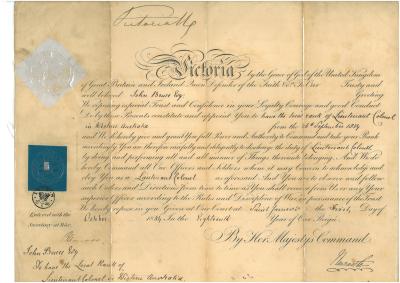 Victoria R
Victoria by the Grace of God of the United Kingdom
of Great Britain and Ireland Queen Defender of the Faith &c. To Our Trusty and
well beloved John Bruce Esq Greeting
We reposing especial Trust and Confidence in your Loyalty Courage and good Conduct
Do by these Presents constitute and appoint You to have the local rank of Lieutenant Colonel
in Western Australia from the September 1854
and We do hereby give and grant You full Power and Authority to Command and take your Rank
accordingly You are therefore carefully and diligently to discharge the duty of Lieutenant Colonel
by doing and performing all and all manner of Things thereunto belonging And We do
hereby Command all Our Officers and Soldiers whom it may Concern to acknowledge and
obey You as a Lieutenant Colonel as aforesaid And You are to observe and follow
such Orders and Directions from time to time as You shall receive from Us or any Your
superior Officer according to the Rules and Discipline of War in pursuance of the Trust
We hereby repose in you Given at Our Court at Saint James's the First Day of
October 1854 In the Eighteenth Year of Our Reign
Entered with the
Secretary at War
By Her Majesty's Command
John Bruce Esq
To have the Local Rank of
Lieutenant Colonel in Western Australia